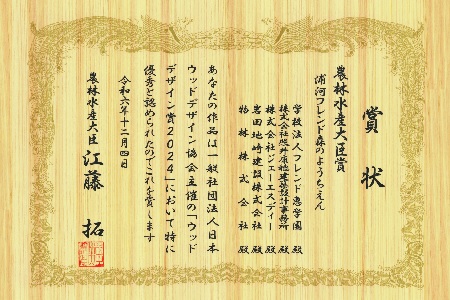 賞状
農林水産大臣賞
浦河フレンド森のようちえん
学校法人フレンド恵学園 殿
株式会社照井康穂建築設計事務所 殿
株式会社ジェーエスディー 殿
岩田地崎建設株式会社 殿
物林株式会社 殿
あなたの作品は一般社団法人日本
ウッドデザイン協会主催の「ウッド
デザイン賞2024」において特に
優秀と認められたのでこれを賞します
令和六年十二月四日
農林水産大臣 江藤 拓